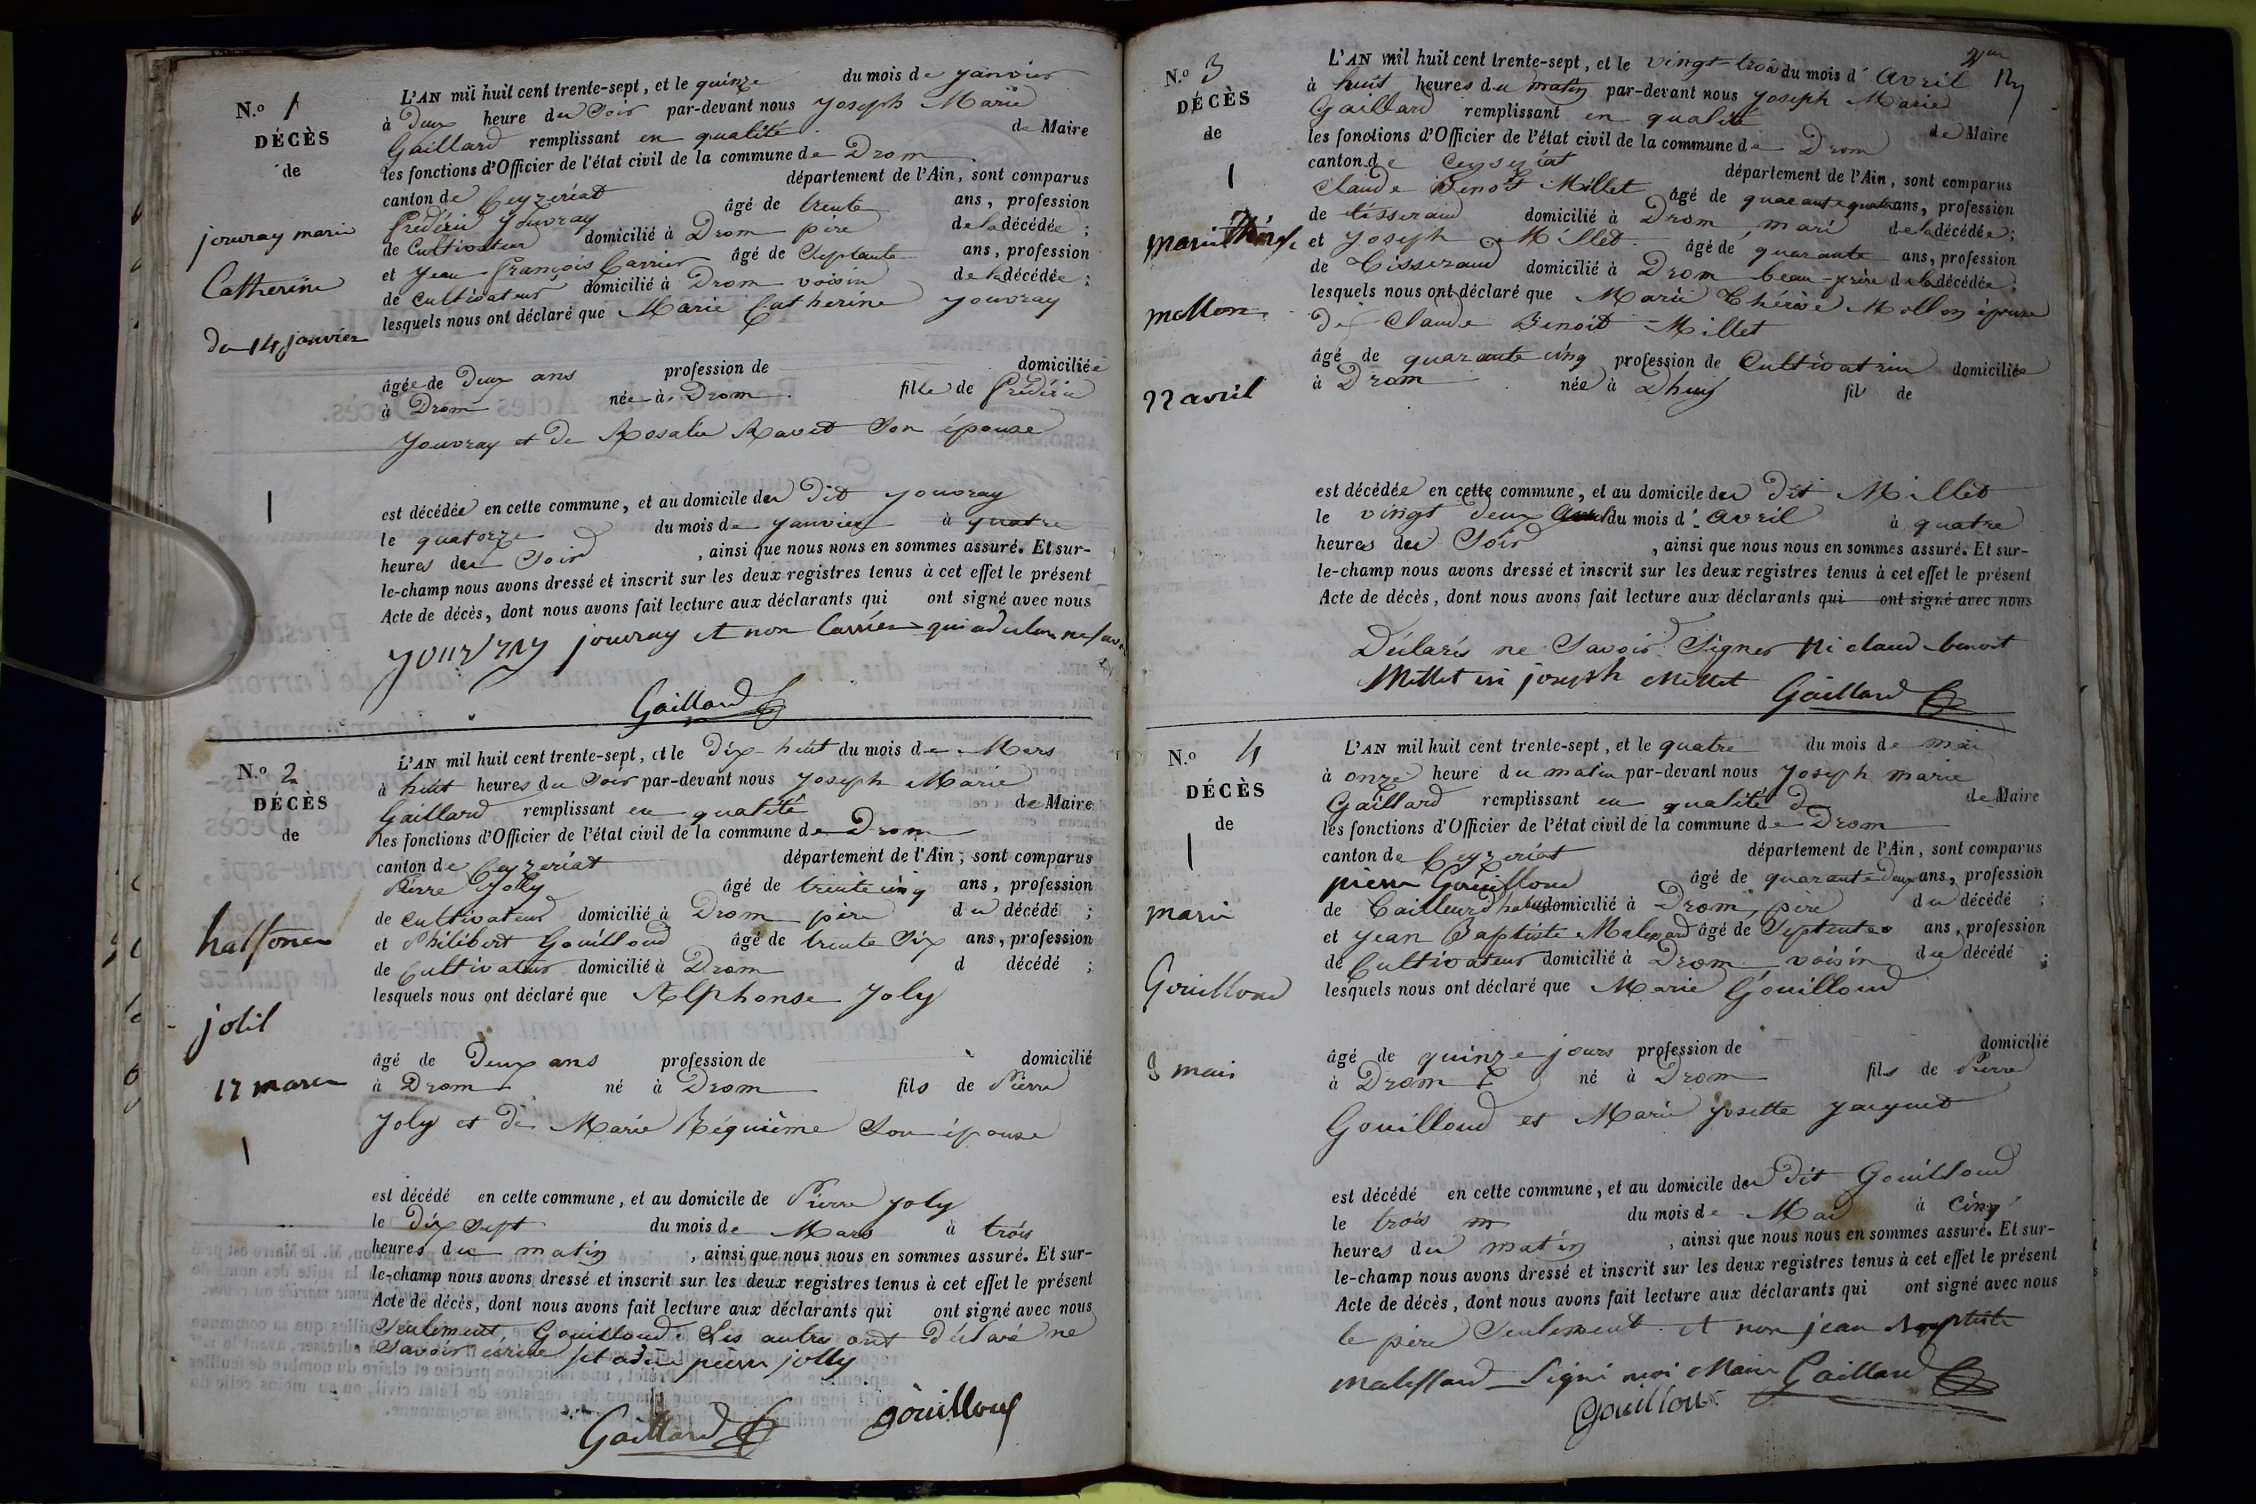 N.º 1
DÉCÈS
de
jouvray marie
Catherine
du 14 janvier
L'AN mil huit cent trente-sept, et le quinze du mois de janvier
à deux heure du soir par-devant nous Joseph Marie
Gaillard remplissant en qualité de Maire
les fonctions d'Officier de l'état civil de la commune de Drom
canton de Ceyzeriat département de l'Ain, sont comparus
Frédéric Jouvray âgé de trente ans, profession
de Cultivateur domicilié à Drom père de la décédée ;
et Jean François Carrier âgé de Septante ans, profession
de cultivateur domicilié à Drom voisin de la décédée ;
lesquels nous ont déclaré que Marie Catherine Jouvray
âgée de Deux ans profession de domiciliée
à Drom née à Drom fille de Frédéric
Jouvray et de Rosalie Ravet Son épouse
est décédée en cette commune, et au domicile du dit Jouvray
le quatorze du mois de janvier à quatre
heures du Soir, ainsi que nous nous en sommes assuré. Et sur-
le-champ nous avons dressé et inscrit sur les deux registres tenus à cet effet le présent
Acte de décès, dont nous avons fait lecture aux déclarants qui ont signé avec nous
jouvray et non Carrier qui a
Gaillard
N.º 2
DÉCÈS
de
halfonce
jolil
17 mars
L'AN mil huit cent trente-sept, et le Dix-huit du mois de Mars
à huit heures du Soir par-devant nous Joseph Marie
Gaillard remplissant en qualité de Maire
les fonctions d'Officier de l'état civil de la commune de Drom
canton de Ceyzeriat département de l'Ain, sont comparus
Pierre Jolly âgé de trente cinq ans, profession
de cultivateur domicilié à Drom père du décédé ;
et Philibert Gouilloud âgé de trente Six ans, profession
de Cultivateur domicilié à Drom d décédé ;
lesquels nous ont déclaré que Alphonse Joly
âgé de Deux ans profession de domicilié
à Drom né à Drom fils de Pierre
Joly et de Marie Réquième Son épouse
est décédé en cette commune, et au domicile de Pierre Joly
le Dix Sept du mois de Mars à trois
heures du matin, ainsi que nous nous en sommes assuré. Et sur-
le-champ nous avons dressé et inscrit sur les deux registres tenus à cet effet le présent
Acte de décès, dont nous avons fait lecture aux déclarants qui ont signé avec nous
Seulement, Gouilloud. Les autres ont Déclaré ne
Savoir pierre jolly
Gaillard gouilloud
N.º 3
DÉCÈS
de
marie Thérese
mollon
22 avril
L'AN mil huit cent trente-sept, et le vingt-trois du mois d'Avril
à huit heures du matin par-devant nous Joseph Marie
Gaillard remplissant en qualité de Maire
les fonctions d'Officier de l'état civil de la commune de Drom
canton de Ceyseriat département de l'Ain, sont comparus
Claude Benoît Millet âgé de quarante quatre ans, profession
de tisserand domicilié à Drom, mari de la décédée ;
et Joseph Millet âgé de quarante ans, profession
de Tisserand domicilié à Drom beau-frère de la décédée ;
lesquels nous ont déclaré que Marie Therèse Mollon épouse
De Claude Benoit Millet
âgé de quarante cinq profession de Cultivatrice domiciliée
à Drom née à Dhuys fil de
est décédée en cette commune, et au domicile du dit Millet
le vingt deux du mois d'avril à quatre
heures du Soir, ainsi que nous nous en sommes assuré. Et sur-
le-champ nous avons dressé et inscrit sur les deux registres tenus à cet effet le présent
Acte de décès, dont nous avons fait lecture aux déclarants qui ont signé avec nous
Déclarés ne Savoir Signer ni claude benoit
Millet ni joseph Millet Gaillard
N.º 4
DÉCÈS
de
marie
Gouilloud
3 mai
L'AN mil huit cent trente-sept, et le quatre du mois de mai
à onze heure du matin par-devant nous Joseph marie
Gaillard remplissant en qualité de de Maire
les fonctions d'Officier de l'état civil de la commune de Drom
canton de Ceyzeriat département de l'Ain, sont comparus
pierre Gouilloud âgé de quarante Deux ans, profession
de Tailleur d'habits domicilié à Drom, père du décédé ;
et Jean Baptiste Malessard âgé de Septente ans, profession
de Cultivateur domicilié à Drom voisin du décédé ;
lesquels nous ont déclaré que Marie Gouilloud
âgé de quinze jours profession de domicilié
à Drom né à Drom fils de Pierre
Gouilloud et Marie Josette Jacquet
est décédé en cette commune, et au domicile du Dit Gouilloud
le trois du mois de Mai à Cinq
heures du matin, ainsi que nous nous en sommes assuré. Et sur-
le-champ nous avons dressé et inscrit sur les deux registres tenus à cet effet le présent
Acte de décès, dont nous avons fait lecture aux déclarants qui ont signé avec nous
le père Seulement et non jean Baptiste
malissard Signé moi Maire Gaillard
Gouilloud